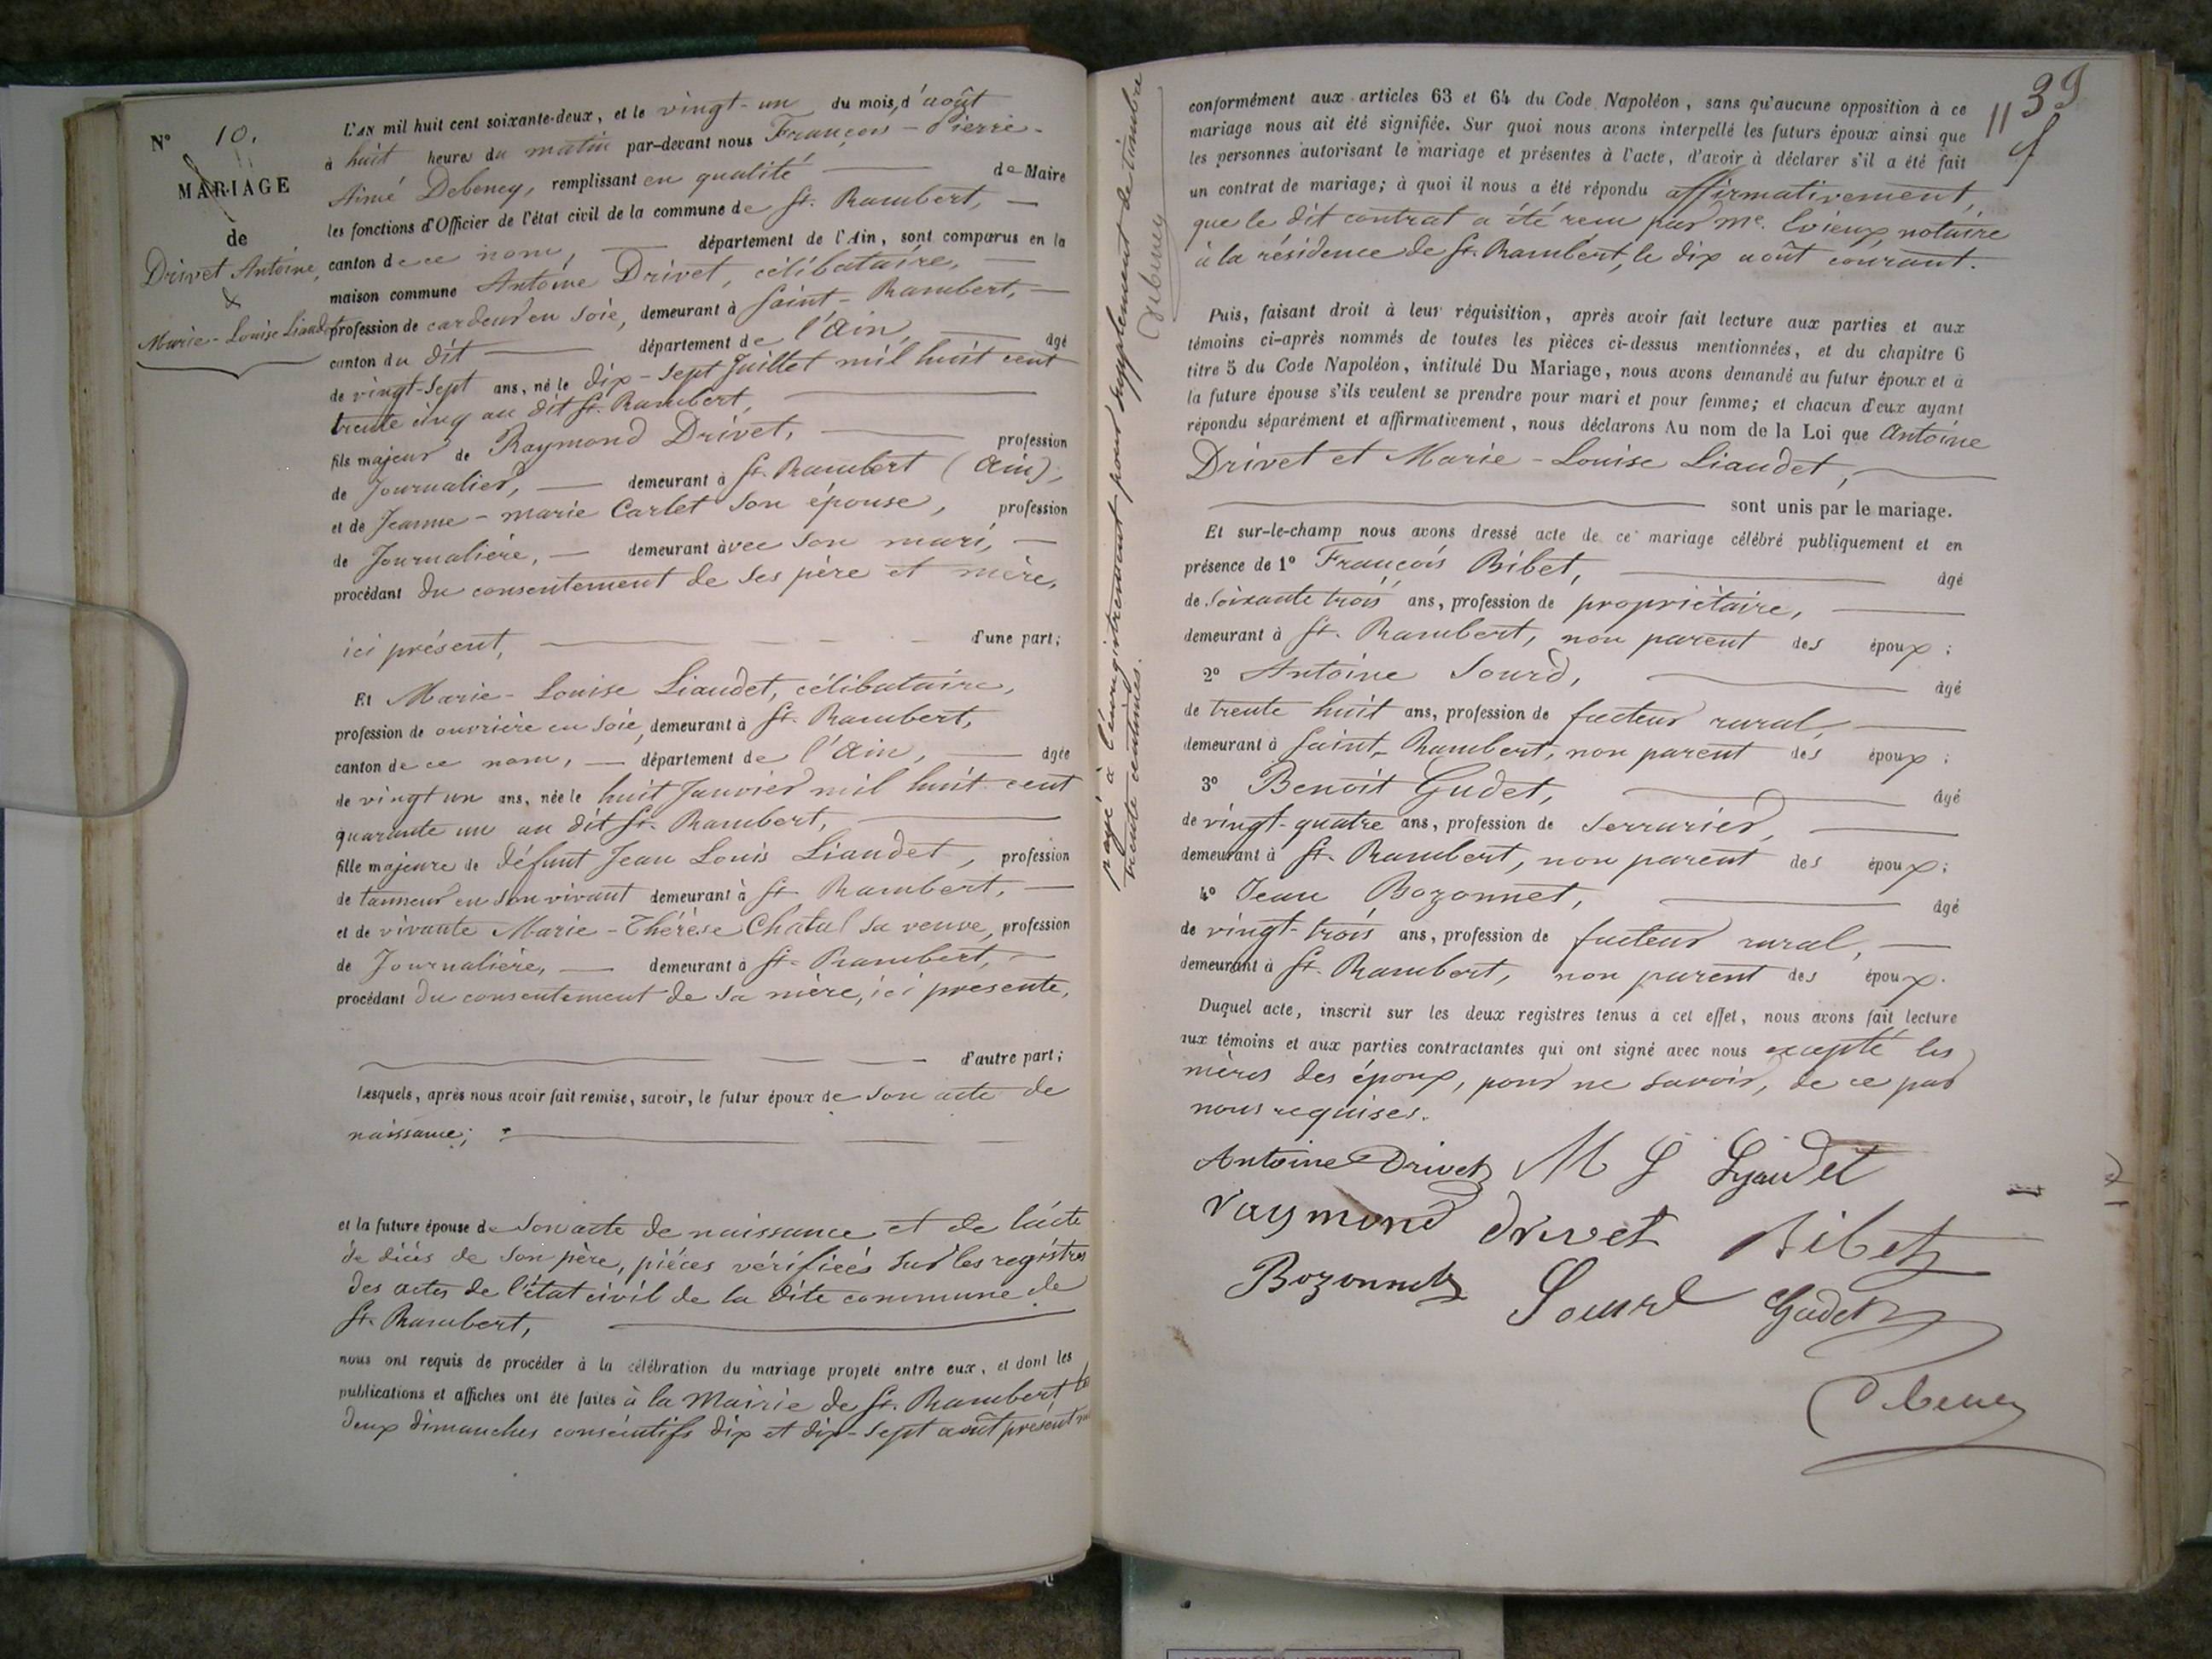 N° 10.
MARIAGE
de
Drivet Antoine,
&
Marie-Louise Liaudet
L'AN mil huit cent soixante-deux, et le vingt-un du mois, d'août
à huit heures du matin par-devant nous François-Pierre-
Aimé Debeney, remplissant en qualité de Maire
les fonctions d'Officier de l'état civil de la commune de St. Rambert,
canton de ce nom, département de l'Ain, sont comparus en la
maison commune Antoine Drivet, célibataire,
profession de cardeur en soie, demeurant à Saint-Rambert,
canton du dit département de l'Ain, âgé
de vingt-sept ans, né le dix-sept Juillet mil huit cent
trente cinq au dit St. Rambert,
fils majeur de Raymond Drivet, profession
de Journalier, demeurant à St. Rambert (Ain),
et de Jeanne-marie Carlet son épouse, profession
de Journalière, demeurant avec son mari,
procédant du consentement de ses père et mère,
ici présent, d'une part;
Et Marie-Louise Liaudet, célibataire,
profession de ouvrière en soie, demeurant à St. Rambert,
canton de ce nom, département de l'Ain, âgée
de vingt un ans, née le huit Janvier mil huit cent
quarante un au dit St. Rambert,
fille majeure de défunt Jean Louis Liaudet, profession
de tanneur en son vivant demeurant à St. Rambert,
et de vivante Marie-Thérèse Chatal sa veuve, profession
de Journalière, demeurant à St. Rambert,
procédant du consentement de sa mère, ici présente,
d'autre part;
Lesquels, après nous avoir fait remise, savoir, le futur époux de son acte de
naissance;
et la future épouse de son acte de naissance et de l'acte
de décès de son père, pièces vérifiées sur les registres
des actes de l'état civil de la dite commune de
St. Rambert,
nous ont requis de procéder à la célébration du mariage projeté entre eux, et dont les
publications et affiches ont été faites à la Mairie de St. Rambert les
deux dimanches consécutifs dix et dix-sept août présent
payé à l'enregistrement pour supplément de timbre
trente centimes.
Debeney
39
conformément aux articles 63 et 64 du Code Napoléon, sans qu'aucune opposition à ce
mariage nous ait été signifiée. Sur quoi nous avons interpellé les futurs époux ainsi que
les personnes autorisant le mariage et présentes à l'acte, d'avoir à déclarer s'il a été fait
un contrat de mariage; à quoi il nous a été répondu affirmativement,
que le dit contrat a été reçu par Me. notaire
à la résidence de St. Rambert, le dix août courant.
Puis, faisant droit à leur réquisition, après avoir fait lecture aux parties et aux
témoins ci-après nommés de toutes les pièces ci-dessus mentionnées, et du chapitre 6
titre 5 du Code Napoléon, intitulé Du Mariage, nous avons demandé au futur époux et à
la future épouse s'ils veulent se prendre pour mari et pour femme; et chacun d'eux ayant
répondu séparément et affirmativement, nous déclarons Au nom de la Loi que Antoine
Drivet et Marie-Louise Liaudet,
sont unis par le mariage.
Et sur-le-champ nous avons dressé acte de ce mariage célébré publiquement et en
présence de 1° François Bibet, âgé
de soixante trois ans, profession de propriétaire,
demeurant à St. Rambert, non parent des époux;
2° Antoine Sourd, âgé
de trente huit ans, profession de facteur rural,
demeurant à Saint-Rambert, non parent des époux;
3° Benoît Gudet, âgé
de vingt-quatre ans, profession de serrurier,
demeurant à St. Rambert, non parent des époux;
4° Jean Bozonnet, âgé
de vingt-trois ans, profession de facteur rural,
demeurant à St. Rambert, non parent des époux.
Duquel acte, inscrit sur les deux registres tenus à cet effet, nous avons fait lecture
aux témoins et aux parties contractantes qui ont signé avec nous excepté les
mères des époux, pour ne savoir, de ce par
nous requises.
Antoine Drivet M L Lyaudet
raymond drivet Bibet
Bozonnet Sourd Gudet
Debeney